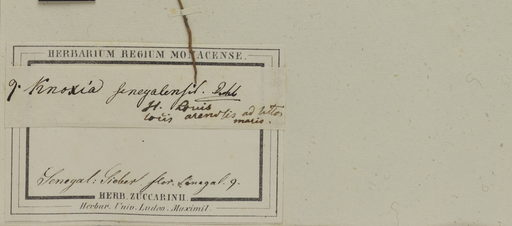 HERBARIUM REGIUM MONACENSE.
9. Knoxia senegalensis.
St. Louis
locis arenosis ad littus
maris.
Senegal: Sieber flor. Senegal. 9.
HERB. ZUCCARINII.
Herbar. Univ. Ludov. Maximil.